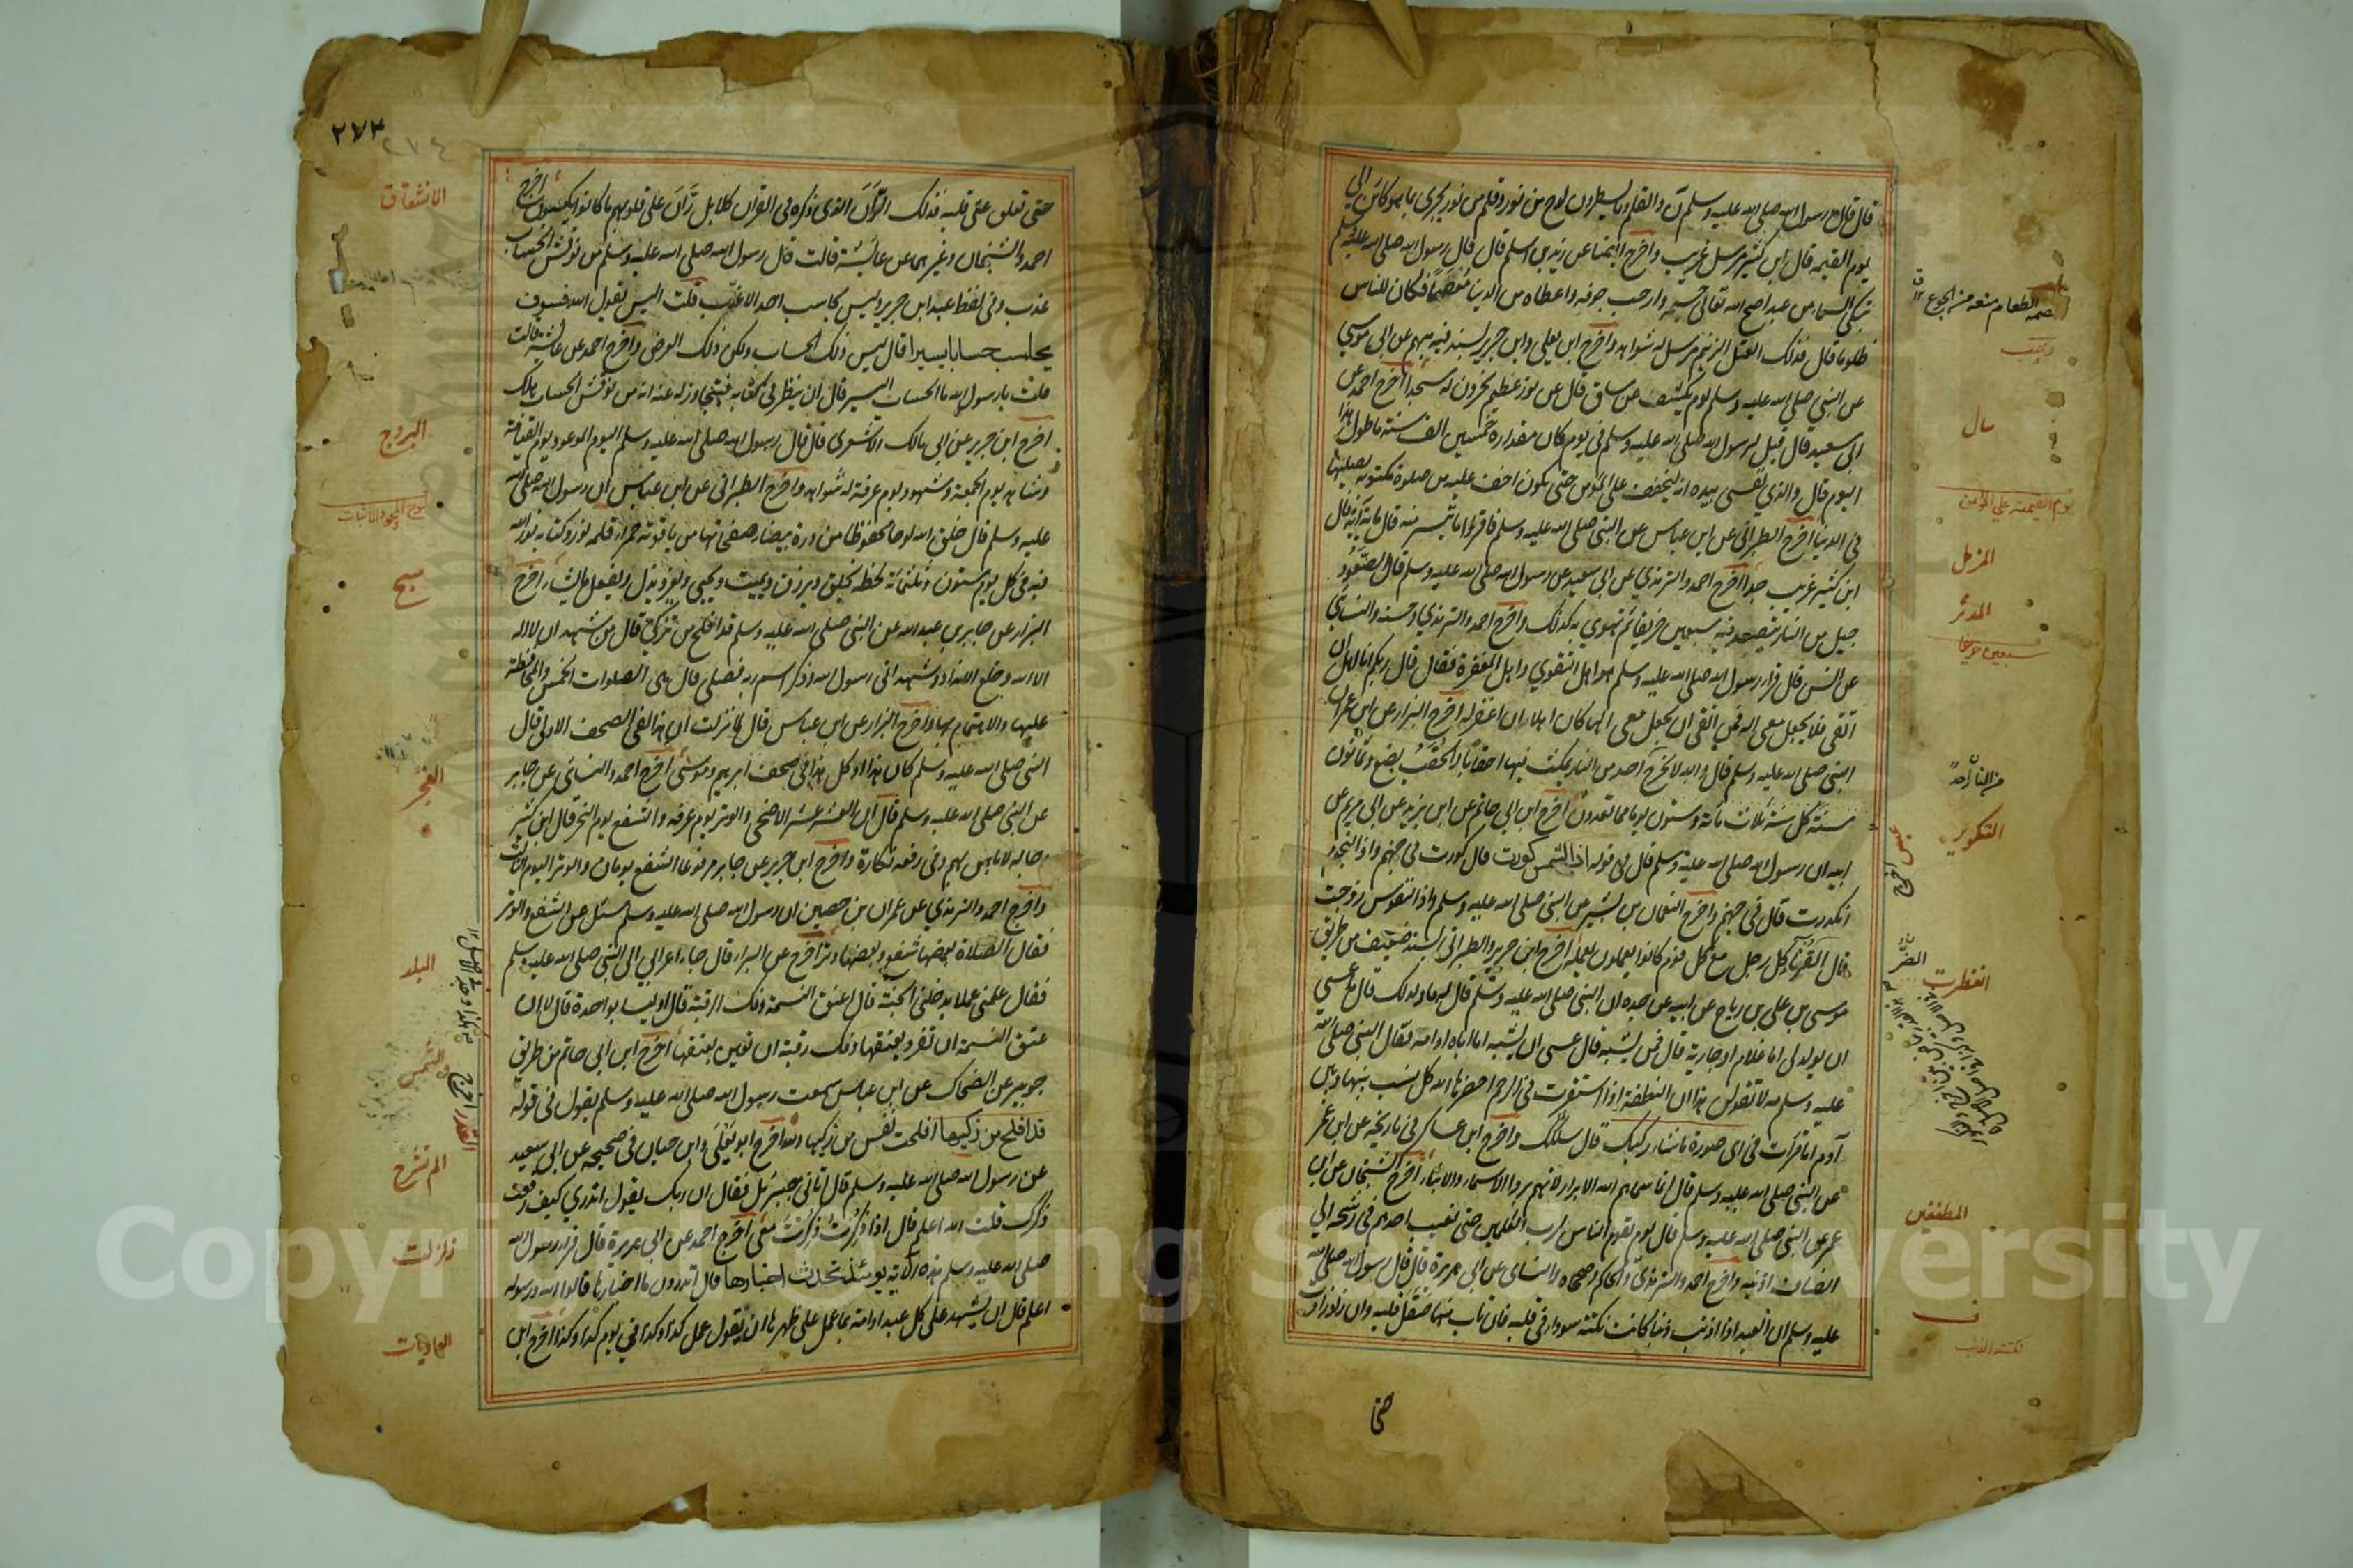 قال قال رسول الله صلى الله عليه وسلم ن والقلم وما يسطرون لوح من نور وقلم من نور يجري بما هو كائن الى
يوم القيمه قال ابن كثير مرسل غريب واخرج ايضا عن زيد بن اسلم قال قال رسول الله صلى الله عليه وسلم
تبكي السماء من عبد اصح الله تعالى جسمه وارحب جوفه واعطاه من الدنيا مقضما فكان للناس
ظلوما قال فذلك العتل الزنيم مرسل له شواهد واخرج ابو يعلى وابن جرير بسند فيه مبهم عن ابي موسي
عن النبي صلى الله عليه وسلم يوم يكشف عن ساق قال عن نور عظيم يخرون له سجدا اخرج احمد عن
ابي سعيد قال قيل لرسول الله صلى الله عليه وسلم في يوم كان مقداره خمسين الف سنة ما طول هذا
اليوم قال والذي نفسي بيده انه ليخفف على المؤمن حتى يكون اخف عليه من صلوة مكتوبه يصليها
في الدنيا اخرج الطبراني عن ابن عباس عن النبي صلى الله عليه وسلم فاقرؤا ما تيسر منه قال ماية آية قال
ابن كثير غريب جدا اخرج احمد والترمذي عن ابي سعيد عن رسول الله صلى الله عليه وسلم قال الصعود
جبل من النار يتصعد فيه سبعين خريفا ثم يهوي به كذلك واخرج احمد والترمذي وحسنه والنسائي
عن انس قال قرأ رسول الله صلى الله عليه وسلم هو اهل التقوي واهل المغفرة فقال قال ربكم انا اهل ان
اتقي فلا يجعل معي اله فمن اتقى ان يجعل معي الها كان اهلا ان اغفر له اخرج البزار عن ابن عمر عن
النبي صلى الله عليه وسلم قال والله لا يخرج احد من النار حتى يمكث فيها احقابا والحقب بضع وثمانون
سنة كل سنة ثلاث مائة وستون يوما مما تعدون اخرج ابن ابي حاتم عن ابن يزيد عن ابي مريم عن
ابيه ان رسول الله صلى الله عليه وسلم قال في قوله اذا الشمس كورت قال كورت في جهنم واذا النجوم
انكدرت قال في جهنم واخرج النعمان بن بشير عن النبي صلى الله عليه وسلم واذا النفوس زوجت
قال القرناء كل رجل مع كل قوم كانوا يعملون بعمله اخرج ابن جرير والطبراني بسند ضعيف من طريق
موسى بن علي بن رباح عن ابيه عن جده ان النبي صلى الله عليه وسلم قال له ما ولد لك قال ما عسي
ان يولد لي اما غلام او جارية قال فمن يشبه قال عسى ان يشبه اما اباه او امه فقال النبي صلى الله
عليه وسلم مه لا تقولن هذا ان النطفة اذا استقرت في الرحم احضرها الله كل نسب بينها وبين
آدم اما قرأت في اى صورة ما شاء ركبك قال سلكك واخرج ابن عساكر في تاريخه عن ابن عمر
عن النبي صلى الله عليه وسلم قال انما سماهم الله الابرار لانهم بروا الاباء والابناء اخرج الشيخان عن ابن
عمر عن النبي صلى الله عليه وسلم قال يوم يقوم الناس لرب العلمين حتى يغيب احدهم في رشحه الي
انصاف اذنيه واخرج احمد والترمذي والحاكم وصححاه والنسائي عن ابي هريرة قال قال رسول الله صلى الله
عليه وسلم ان العبد اذا اذنب ذنبا كانت نكتة سوداء في قلبه فان تاب منها صقل قلبه وان زاد زادت
حتى
يوم القيمة علي المؤمن
سال
المزمل
المدثر
سبعين خريفا
من النار احد
التكوير
انفطرت
المطففين
نكتة الذنب
٢٧٣
٢٧٤
حتى تعلق على قلبه فذلك الران الذي ذكره في القرآن كلا بل ران على قلوبهم ما كانوا يكسبون اخرج
احمد والشيخان وغيرهما عن عائشة قالت قال رسول الله صلى الله عليه وسلم من نوقش الحساب
عذب وفي لفظ عند ابن جرير ليس يحاسب احد الا عذب قلت اليس يقول الله فسوف
يحاسب حسابا يسيرا قال ليس ذلك الحساب ولكن ذلك العرض واخرج احمد عن عائشة قالت
قلت يا رسول الله ما الحساب اليسير قال ان ينظر في كتابه فيتجاوز له عنه انه من نوقش الحساب هلك
اخرج ابن جرير عن ابي مالك الاشعرى قال قال رسول الله صلى الله عليه وسلم اليوم الموعود يوم القيامة
وشاهد يوم الجمعة ومشهود يوم عرفة له شواهد واخرج الطبراني عن ابن عباس ان رسول الله صلى الله
عليه وسلم قال خلق الله لوحا محفوظا من درة بيضاء صفحاتها من ياقوتة حمراء قلمه نور وكتابه نور لله
فيه في كل يوم ستون وثلثمائة لحظة يخلق ويرزق ويميت ويحيي ويعز ويذل ويفعل ما يشاء اخرج
البزار عن جابر بن عبد الله عن النبي صلى الله عليه وسلم قد افلح من تزكى قال من شهد ان لا اله
الا الله وخلع الانداد وشهد انى رسول الله وذكر اسم ربه فصلى قال هى الصلوات الخمس والمحافظة
عليها والاهتمام بها واخرج البزار عن ابن عباس قال لما نزلت ان هذا لفي الصحف الاولى قال
النبي صلى الله عليه وسلم كان هذا او كل هذا في صحف ابرهيم وموسى اخرج احمد والنسائي عن جابر
عن النبي صلى الله عليه وسلم قال ان العشر عشر الاضحى والوتر يوم عرفه والشفع يوم النحر قال ابن كثير
رجاله لا باس بهم وفي رفعه نكارة واخرج ابن جرير عن جابر مرفوعا الشفع يومان والوتر اليوم الثالث
واخرج احمد والترمذي عن عمران بن حصين ان رسول الله صلى الله عليه وسلم سئل عن الشفع والوتر
فقال الصلاة بعضها شفع وبعضها وتر اخرج عن البراء قال جاء اعرابي الى النبي صلى الله عليه وسلم
فقال علمني عملا يدخلني الجنة قال اعتق النسمة وفك الرقبة قال اوليسا بواحدة قال لا ان
عتق النسمة ان تفرد بعتقها وفك رقبة ان تعين بعتقها اخرج ابن ابي حاتم من طريق
جويبر عن الضحاك عن ابن عباس سمعت رسول الله صلى الله عليه وسلم يقول في قوله
قد افلح من زكيها افلحت نفس من زكيها الله اخرج ابو يعلى وابن حبان في صحيحه عن ابى سعيد
عن رسول الله صلى الله عليه وسلم قال اتاني جبرئيل فقال ان ربك يقول اتدري كيف رفعت
ذكرك قلت الله اعلم قال اذا ذكرت ذكرت معي اخرج احمد عن ابي هريرة قال قرأ رسول الله
صلى الله عليه وسلم هذه الآية يومئذ تحدث اخبارها قال اتدرون ما اخبارها قالوا الله ورسوله
اعلم قال ان يشهد على كل عبد او امة بما عمل على ظهرها ان تقول عمل كذا وكذا في يوم كذا وكذا اخرج ابن
الانشقاق
البروج
لوح المحو والاثبات
سبح
الفجر
البلد
والشمس
الم نشرح
زلزلت
العاديات
Copyright © King Saud University